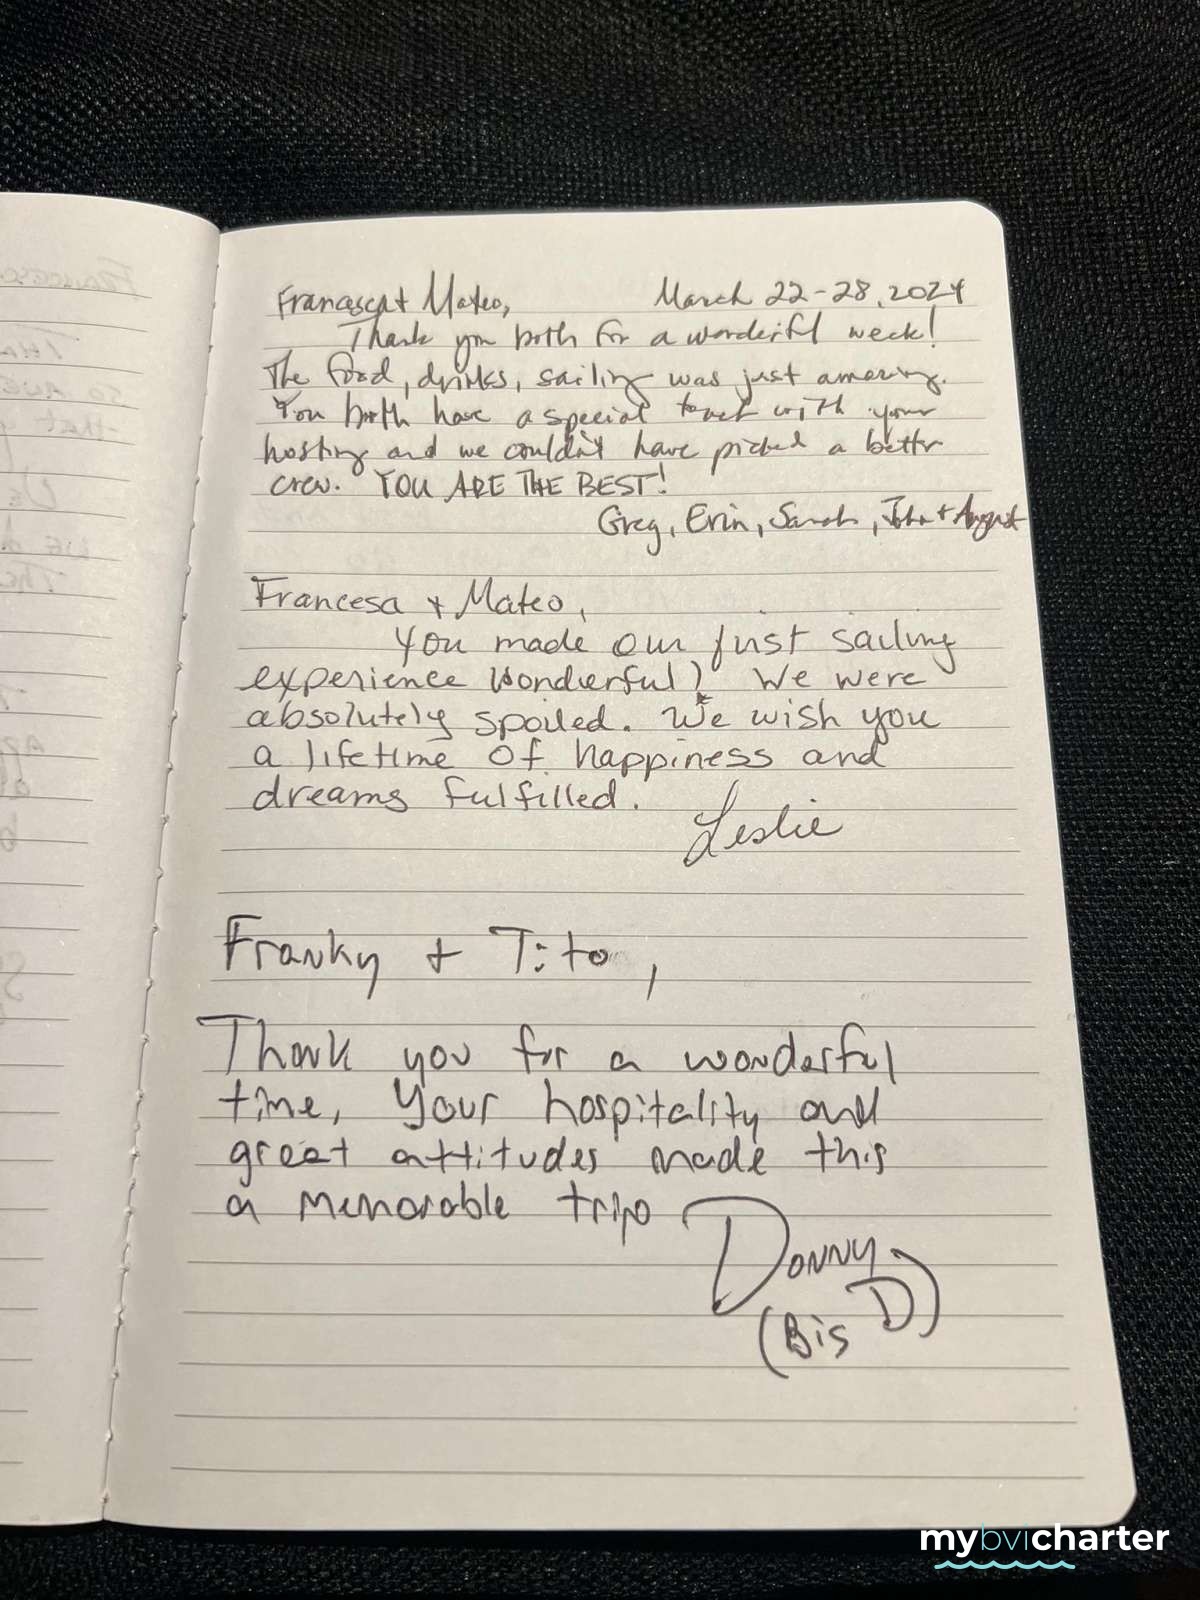 Francesca + Mateo, March 22-28, 2024
Thank you both for a wonderful week!
The food, drinks, sailing was just amazing.
You both have a special touch with your
hosting and we couldn't have picked a better
crew. YOU ARE THE BEST!
Greg, Erin, Sarah, John + August
Francesa + Mateo,
You made our first sailing
experience wonderful! We were
absolutely spoiled. We wish you
a lifetime of happiness and
dreams fulfilled.
Leslie
Franky + Tito,
Thank you for a wonderful
time, Your hospitality and
great attitudes made this
a memorable trip
Donny
(Big D)
mybvicharter